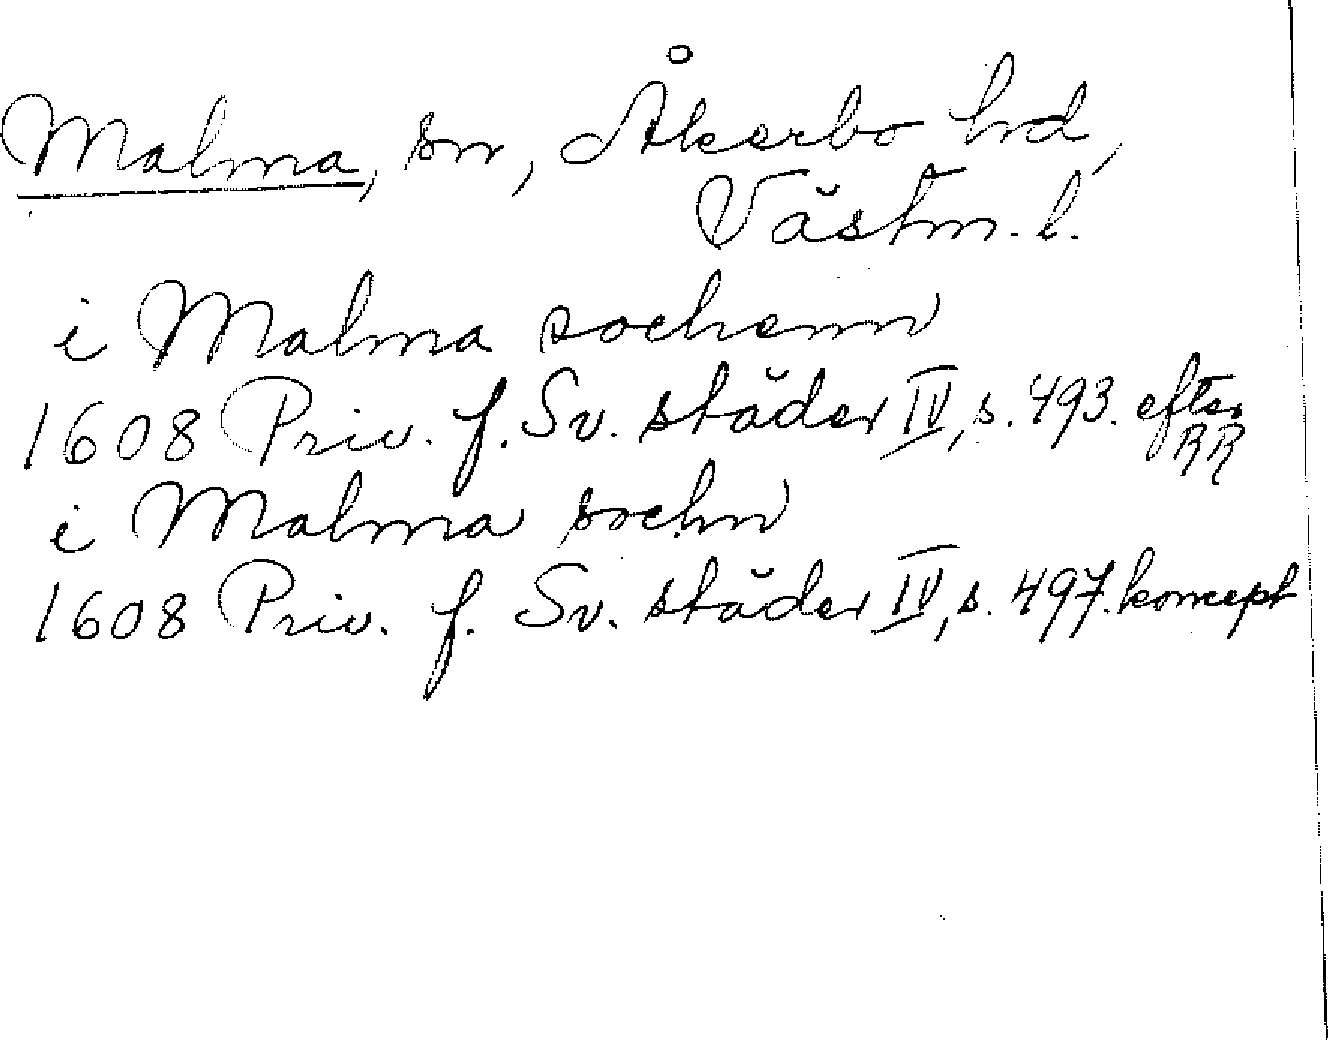 Malma, sn, Åkerbo hd,
Västm. l.
i Malma sochenn
1608 Priv. f. Sv. städer IV, s. 493. efter RR
i Malma sochn
1608 Priv. f. Sv. städer IV, s. 497. koncept